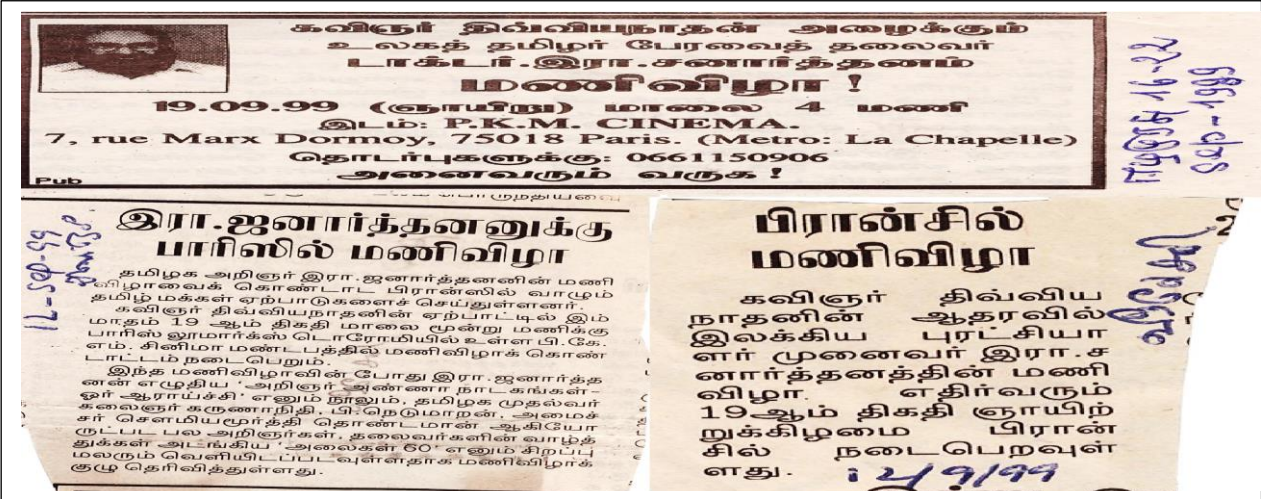 கவிஞர் திவ்வியநாதன் அழைக்கும்
உலகத் தமிழர் பேரவைத் தலைவர்
டாக்டர்.இரா.சனார்த்தனம்
மணிவிழா !
19.09.99 (ஞாயிறு) மாலை 4 மணி
இடம்: P.K.M. CINEMA.
7, rue Marx Dormoy, 75018 Paris. (Metro: La Chapelle)
தொடர்புகளுக்கு: 0661150906
அனைவரும் வருக !
Pub
16-22
Sep-1999
12-Sep-99
இரா.ஜனார்த்தனனுக்கு
பாரிஸில் மணிவிழா
தமிழக அறிஞர் இரா.ஜனார்த்தனனின் மணி
விழாவைக் கொண்டாட பிரான்ஸில் வாழும்
தமிழ் மக்கள் ஏற்பாடுகளைச் செய்துள்ளனர்.
கவிஞர் திவ்வியநாதனின் ஏற்பாட்டில் இம்
மாதம் 19 ஆம் திகதி மாலை மூன்று மணிக்கு
பாரிஸ் லூமார்க்ஸ் டொரோமியில் உள்ள பி.கே.
எம். சினிமா மண்டபத்தில் மணிவிழாக் கொண்
டாட்டம் நடைபெறும்.
இந்த மணிவிழாவின் போது இரா.ஜனார்த்த
னன் எழுதிய 'அறிஞர் அண்ணா நாடகங்கள்-
ஓர் ஆராய்ச்சி' எனும் நூலும், தமிழக முதல்வர்
கலைஞர் கருணாநிதி, பி.நெடுமாறன், அமைச்
சர் சௌமியமூர்த்தி தொண்டமான் ஆகியோ
ருட்பட பல அறிஞர்கள், தலைவர்களின் வாழ்த்
துக்கள் அடங்கிய 'அலைகள் 60' எனும் சிறப்பு
மலரும் வெளியிடப்படவுள்ளதாக மணிவிழாக்
குழு தெரிவித்துள்ளது.
பிரான்சில்
மணிவிழா
கவிஞர் திவ்விய
நாதனின் ஆதரவில்
இலக்கிய புரட்சியா
ளர் முனைவர் இரா.ச
னார்த்தனத்தின் மணி
விழா எதிர்வரும்
19ஆம் திகதி ஞாயிற்
றுக்கிழமை பிரான்
சில் நடைபெறவுள்
ளது.
9/99